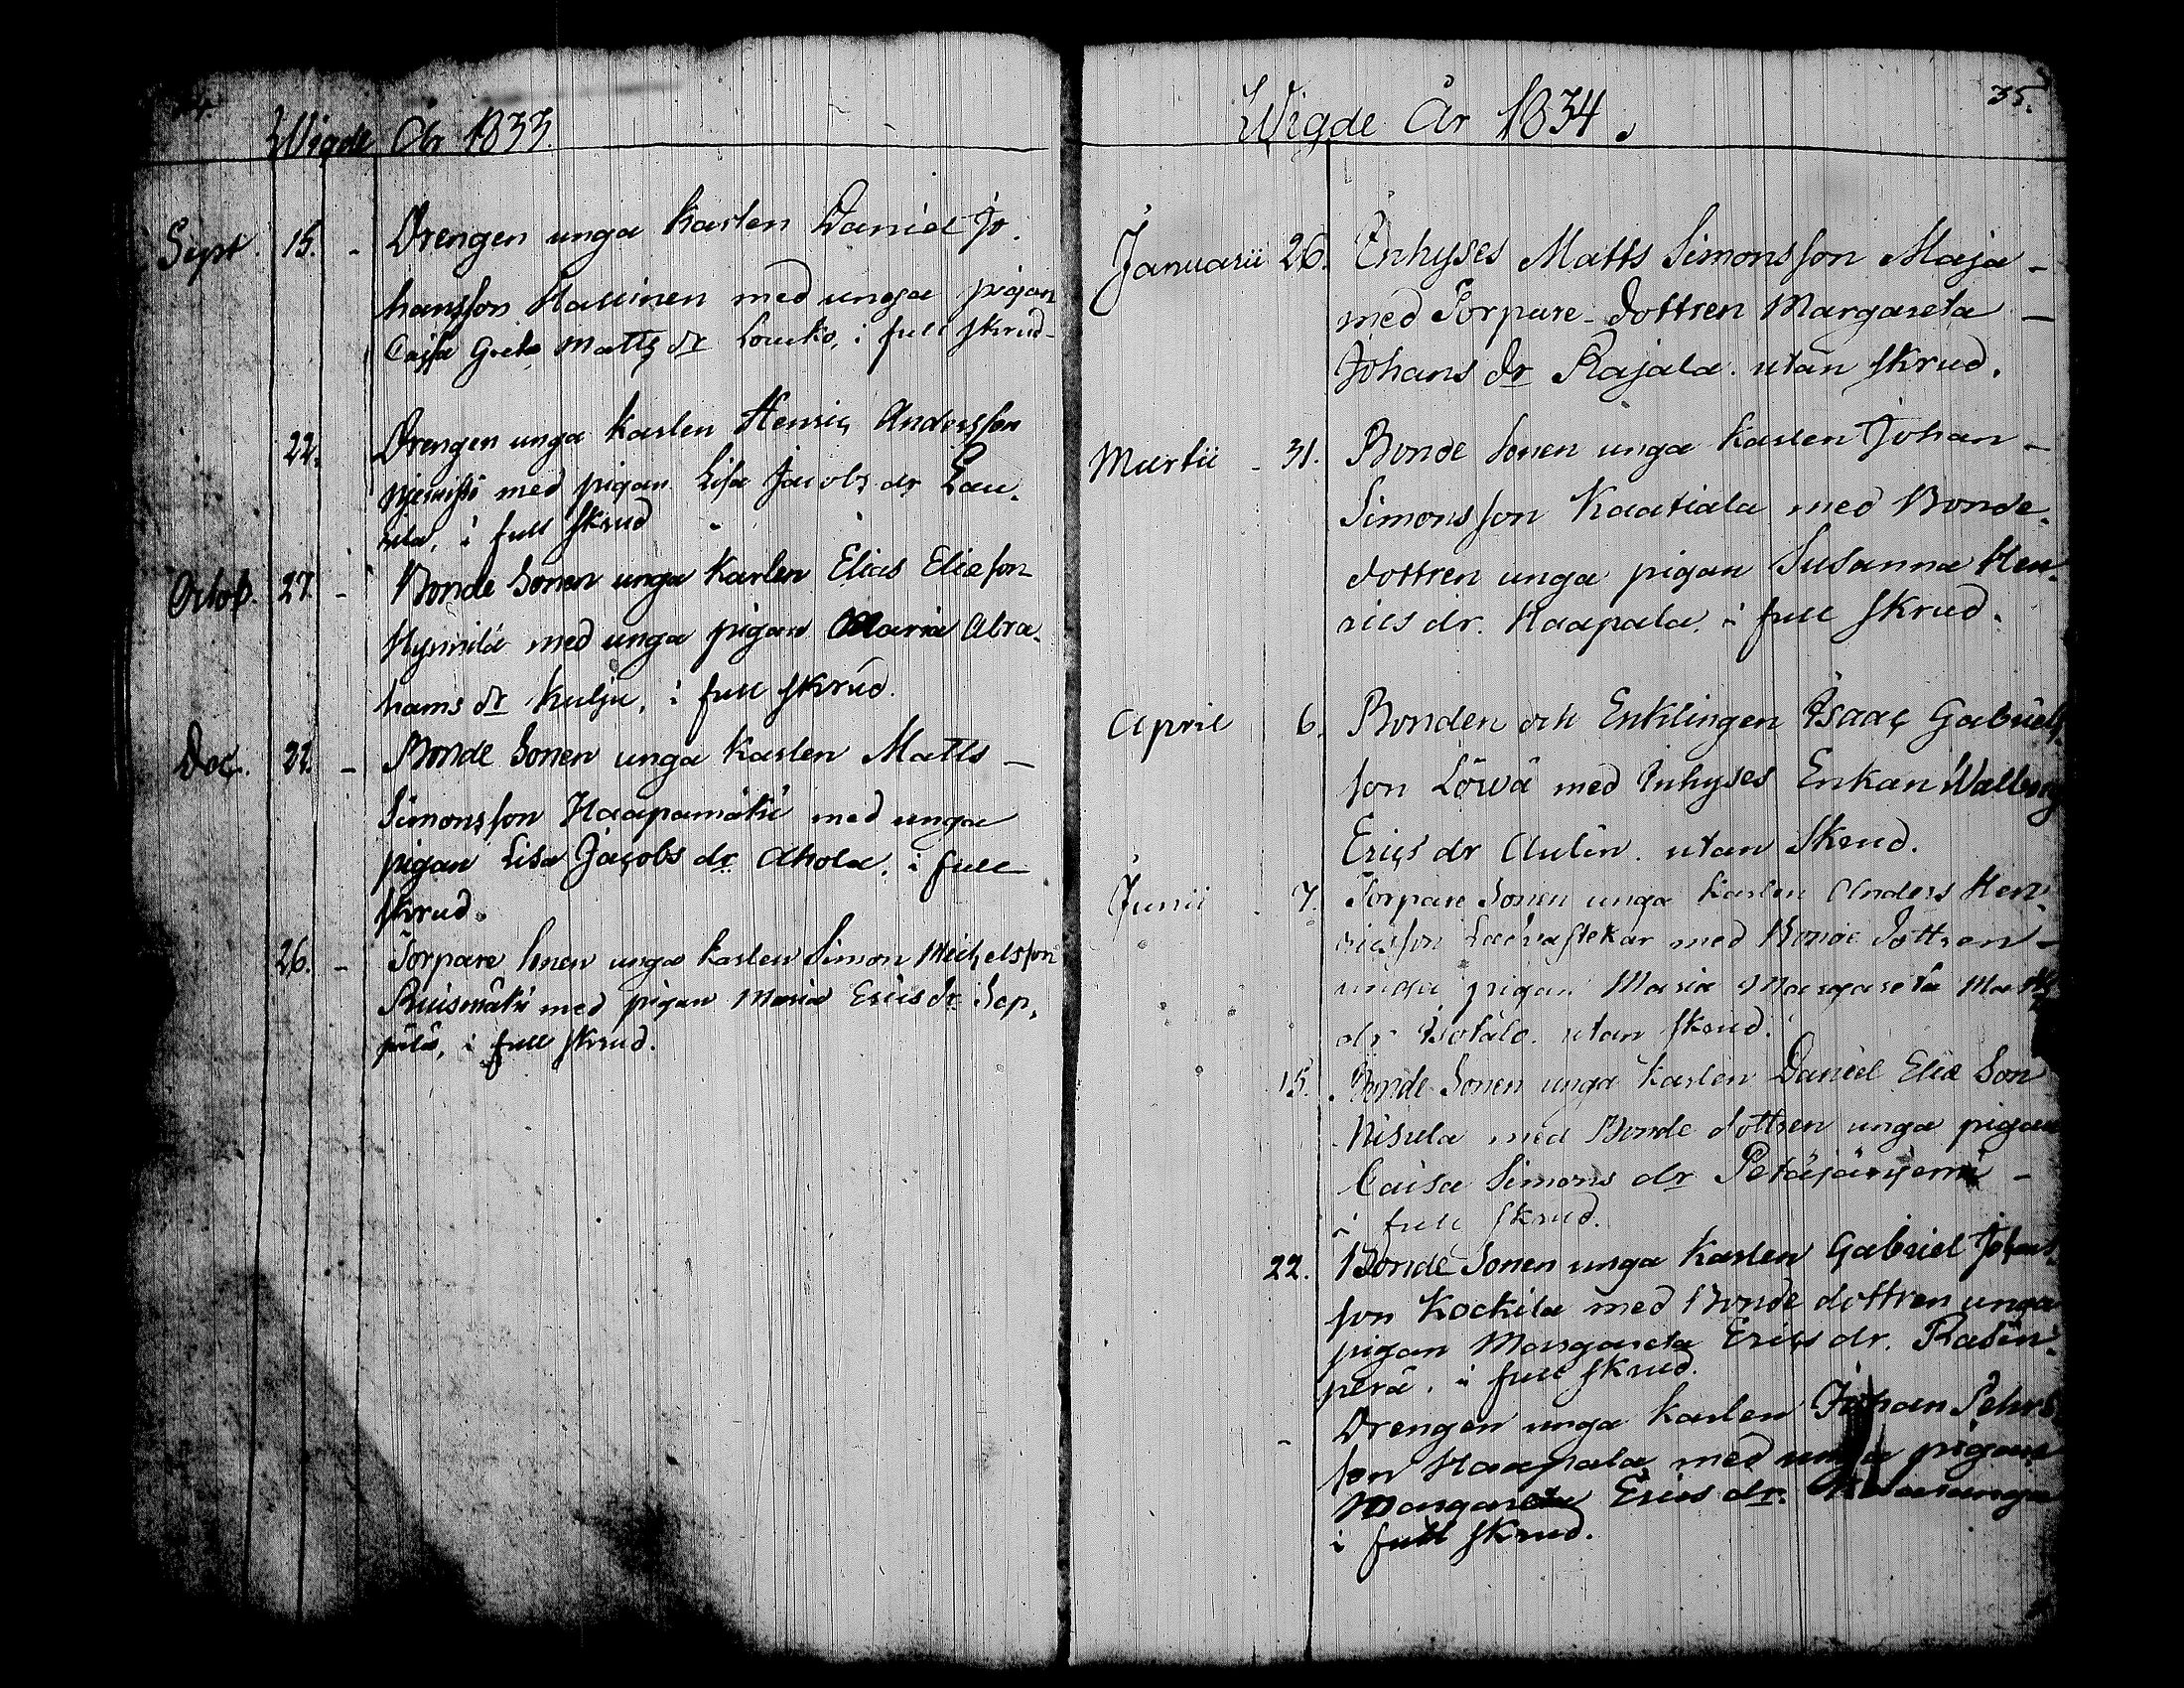 Wigde År 1833.
Sept. 15. - Drengen unga karlen Daniel Jo-
hansson Hallinen med unga pigan
Caisa Greta Matts dr Louko, i full skrud -
22. Drengen unga karlen Henric Andersson
med pigan Lisa Jacobs dr Lau-
rila, i full skrud
Octob. 27. - Bonde Sonen unga karlen Elias Eliæson
med unga pigan Maria Abra-
hams dr Kulju, i full skrud.
Dec. 22. - Bonde Sonen unga karlen Matts -
Simonsson Haapamäki med unga
pigan Lisa Jacobs dr. Ahola, i full
skrud.
26. - Torpare Sonen unga karlen Simon Michelsson
Ruismäki med pigan Maria Erics dr Sep-
pälä, i full skrud.
35.
Wigde År 1834.
Januarii 26. Inhyses Matts Simonsson Maja -
med Torpare-dottren Margareta -
Johans dr Rajala. utan skrud.
Martii - 31. Bonde Sonen unga karlen Johan -
Simonsson Kaatiala med Bonde-
dottren unga pigan Susanna Hen-
rics dr. Haapala. i full skrud.
April 6. Bonden och Enklingen Isaac Gabriels
son Löwä med Inhyses Enkan Walborg
Erics dr Aulin. utan Skrud.
Junii - 7. Torpare Sonen unga karlen Anders Hen-
ricsson med Bonde Dottren -
unga pigan Maria Margareta Matts
dr Isotalo. utan skrud.
15. Bonde Sonen unga karlen Daniel Eliæ Son
Nisula med Bonde dottren unga pigan
Caisa Simons dr -
i full skrud.
22. Bonde Sonen unga karlen Gabriel Johans-
son Kockila med Bonde dottren unga
pigan Margareta Erics dr. Rasin-
perä. i full skrud.
- Drengen unga karlen Johan Pehrs
son Haapala med unga pigan
Margareta Erics dr.
i full skrud.